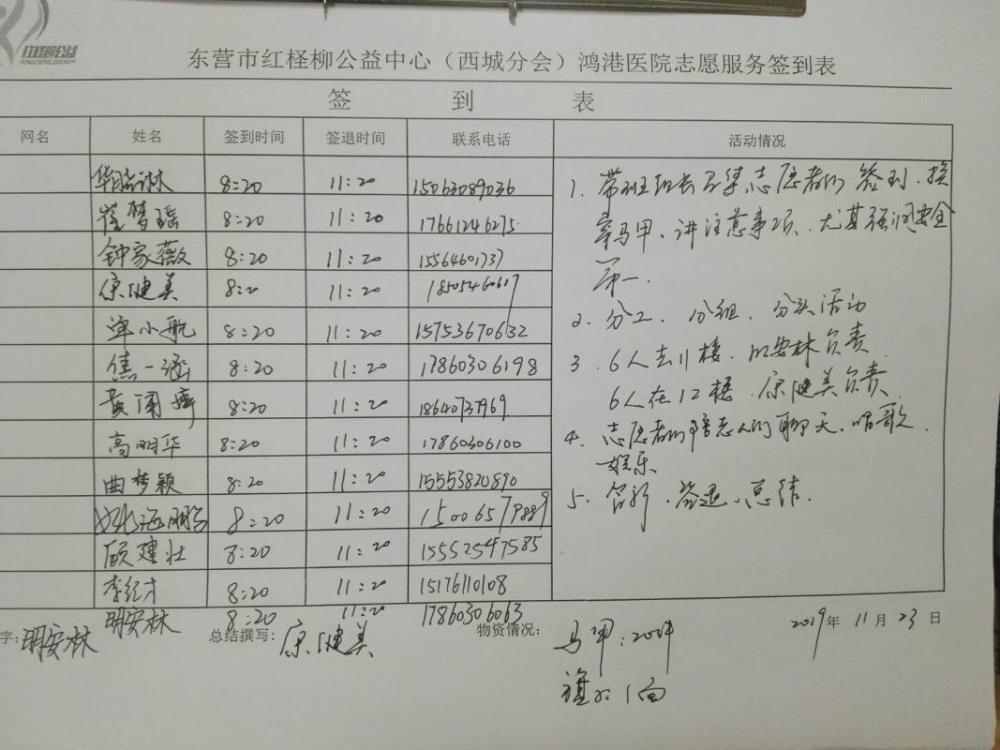 红柽柳公益
东营市红柽柳公益中心（西城分会）鸿港医院志愿服务签到表
签 到 表
网名 姓名 签到时间 签退时间 联系电话 活动情况
8:20 11:20 15063089036
崔梦瑶 8:20 11:20 17661246275
钟家薇 8:20 11:20 15564601737
康健美 8:20 11:20 18505460617
单小航 8:20 11:20 15753670632
焦一涵 8:20 11:20 17860306198
8:20 11:20 18640737969
高明华 8:20 11:20 17860306100
曲梦颖 8:20 11:20 15553820890
8:20 11:20 15006579889
顾建壮 8:20 11:20 15552547585
李纪才 8:20 11:20 15176110108
明安林 8:20 11:20 17860306063
1. 带班班长召集志愿者们签到、换
穿马甲、讲注意事项、尤其强调安全
第一.
2. 分工、分组、分头活动
3. 6人去11楼、明安林负责
6人在12楼、康健美负责
4. 志愿者们陪老人们聊天、唱歌、
娱乐
5. 合影、签退、总结.
字: 明安林 总结撰写: 康健美 物资情况: 马甲:20件
1面
2019年 11月 23日